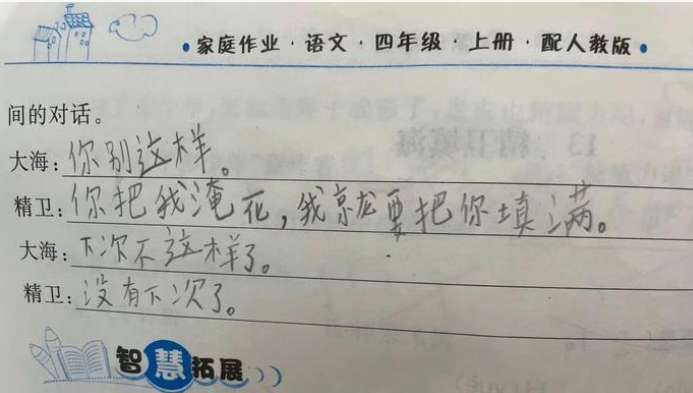 ·家庭作业·语文·四年级·上册·配人教版·
间的对话。
大海:你别这样。
精卫:你把我淹死,我就要把你填满。
大海:下次不这样了。
精卫:没有下次了。
智慧拓展